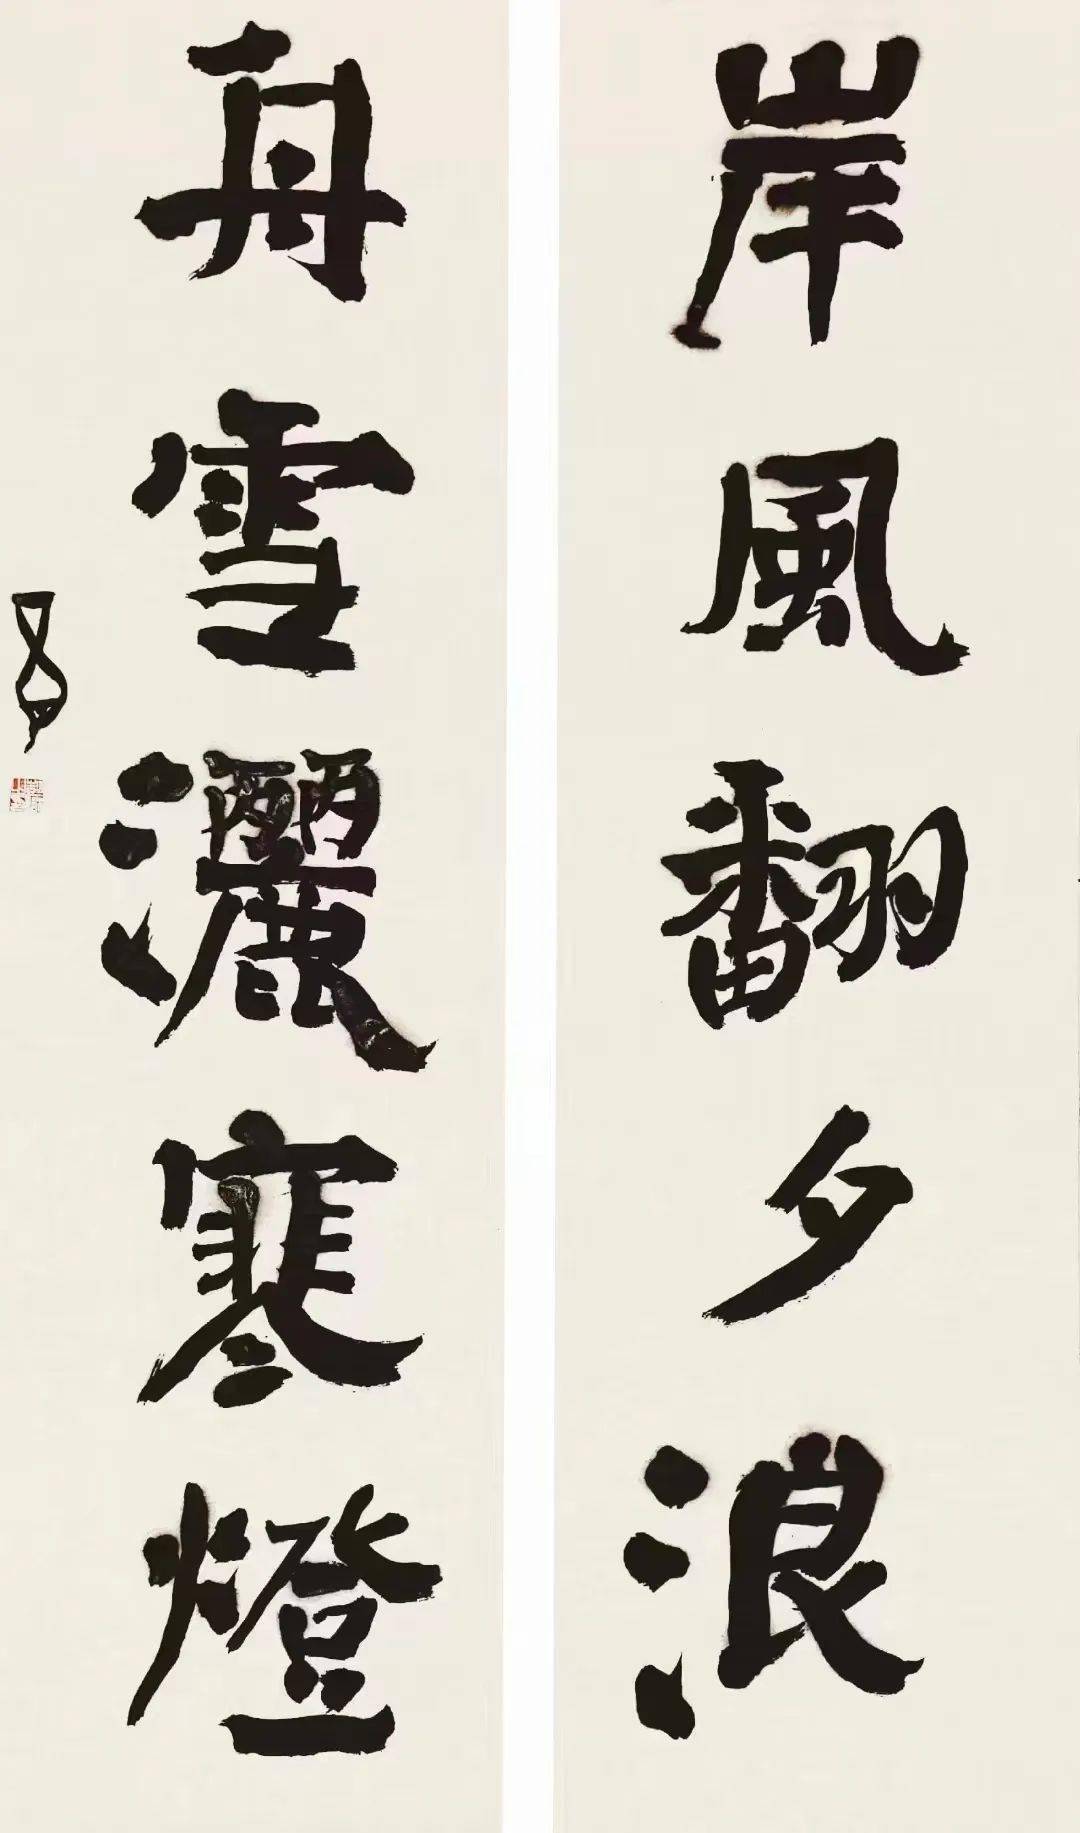 岸風翻夕浪
舟雪灑寒燈